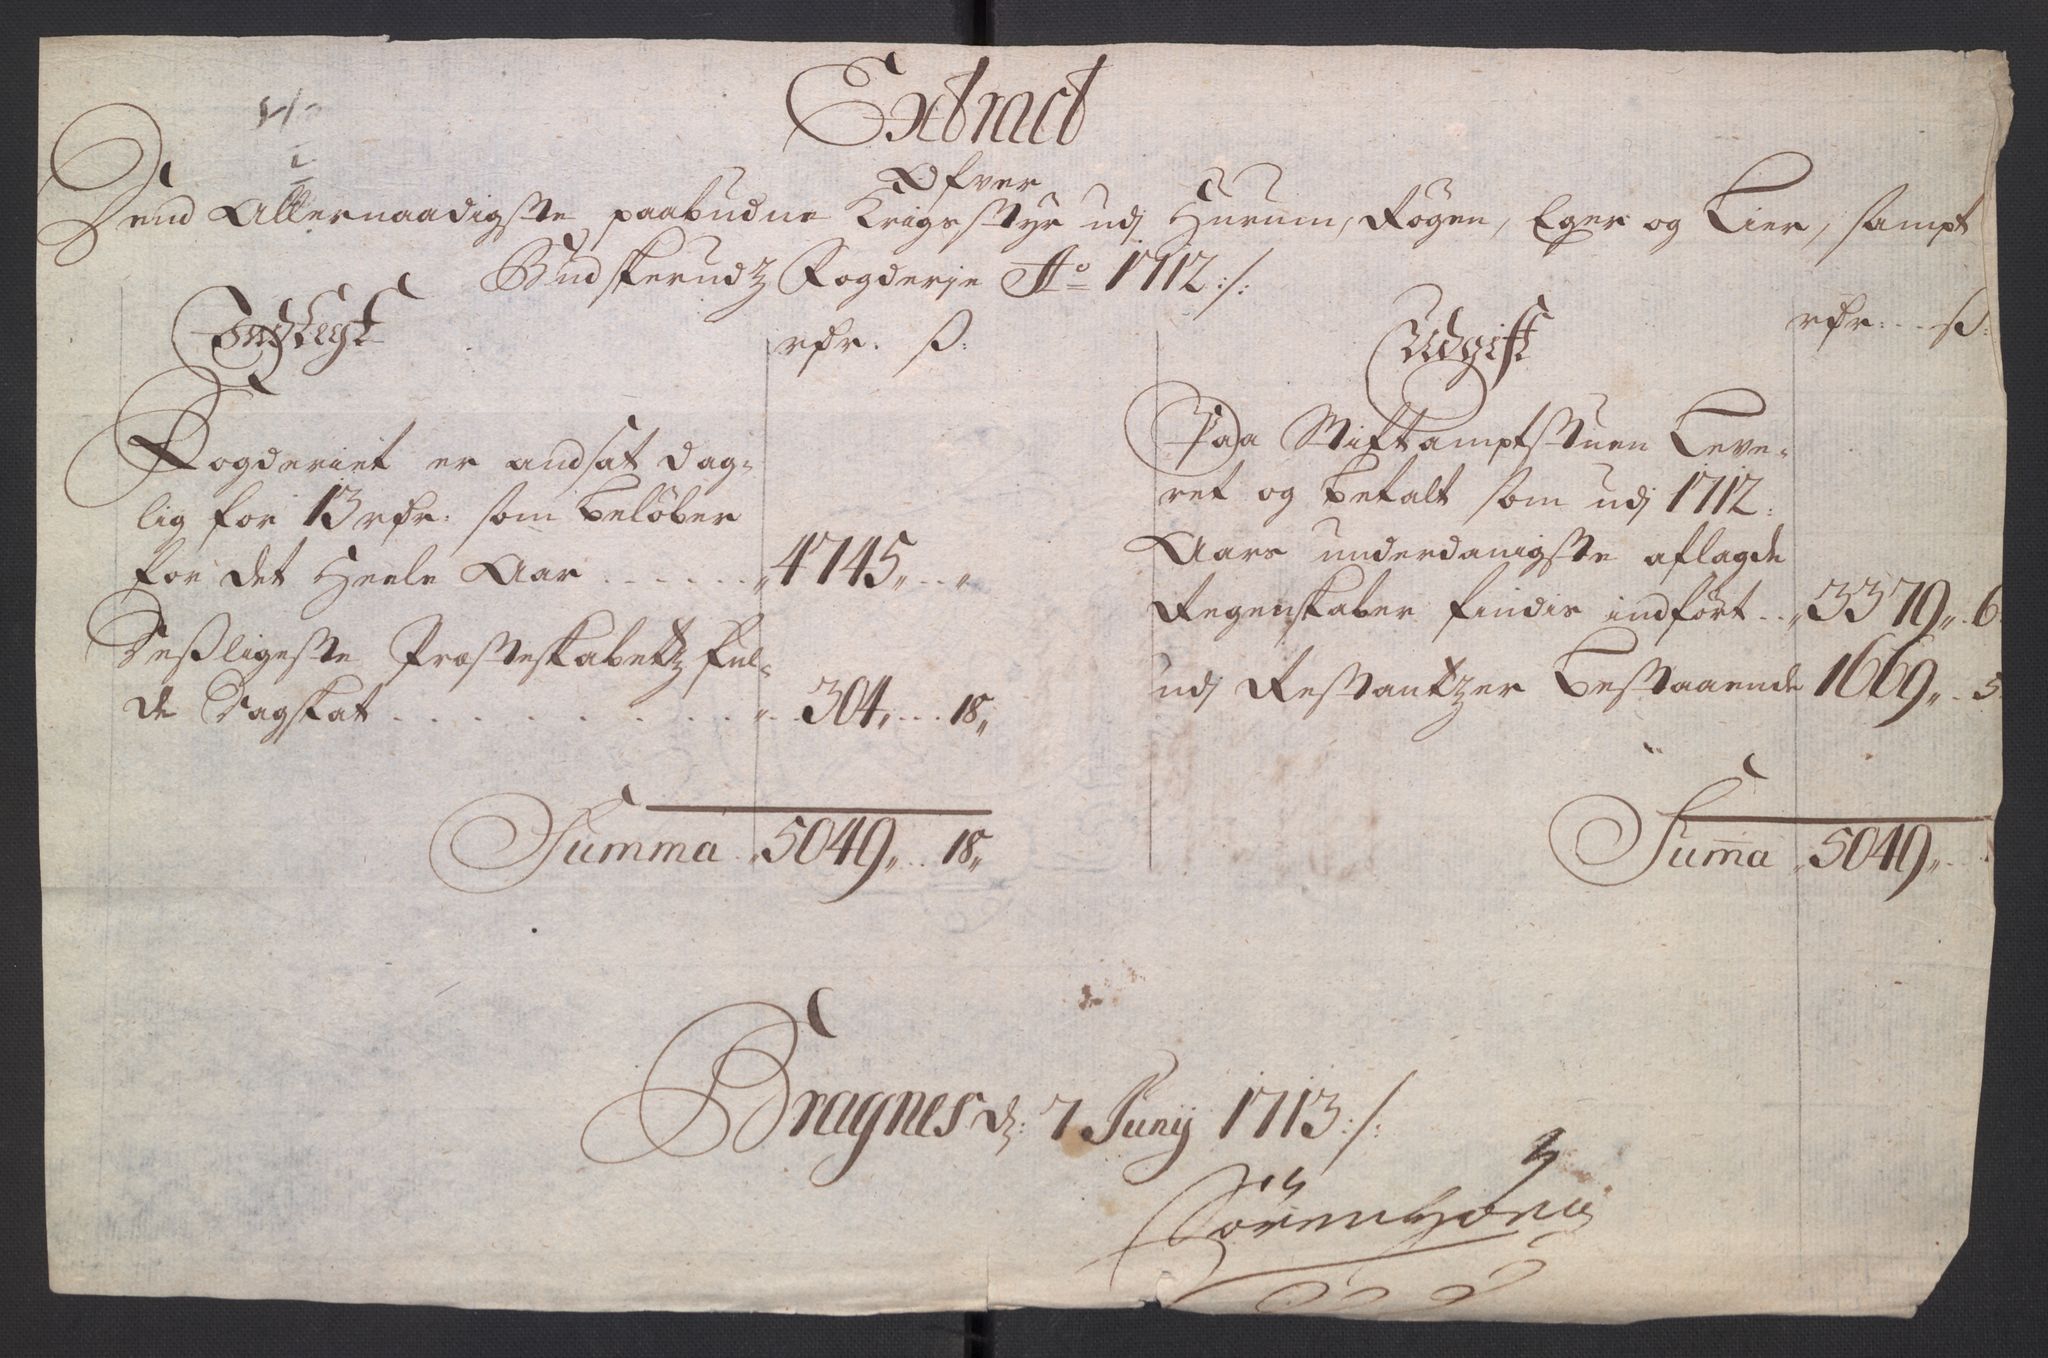 Extract
Ofver
Dend Allernaadigste paabudne Krigsstyr udj Hurum, Røgen, Eger og Lier, sampt
Budskerudz Fogderje Ao 1712 :/:
Indtegt
rdr. ß:
Fogderiet er andsat dag-
lig for 13 rdr: som beløber
for det Heele Aar ...... 4745 „ .. „
Desligeste Præsteskabetz ful-
de Dagskat .......... 304 „ ... 18 „
Summa 5049 „ .. 18 „
Udgift
rdr: ... ß:
Paa Stiftamptstuen Leve-
ret og betalt som udj 1712
Aars underdanigste aflagde
Regenskaber findis indført .. 3379 „ . 6
udj Restantzer bestaaende 1669 „ .. 5
Suma 5049 „ ..
Bragnes d: 7 Junij 1713 :/:
Sören